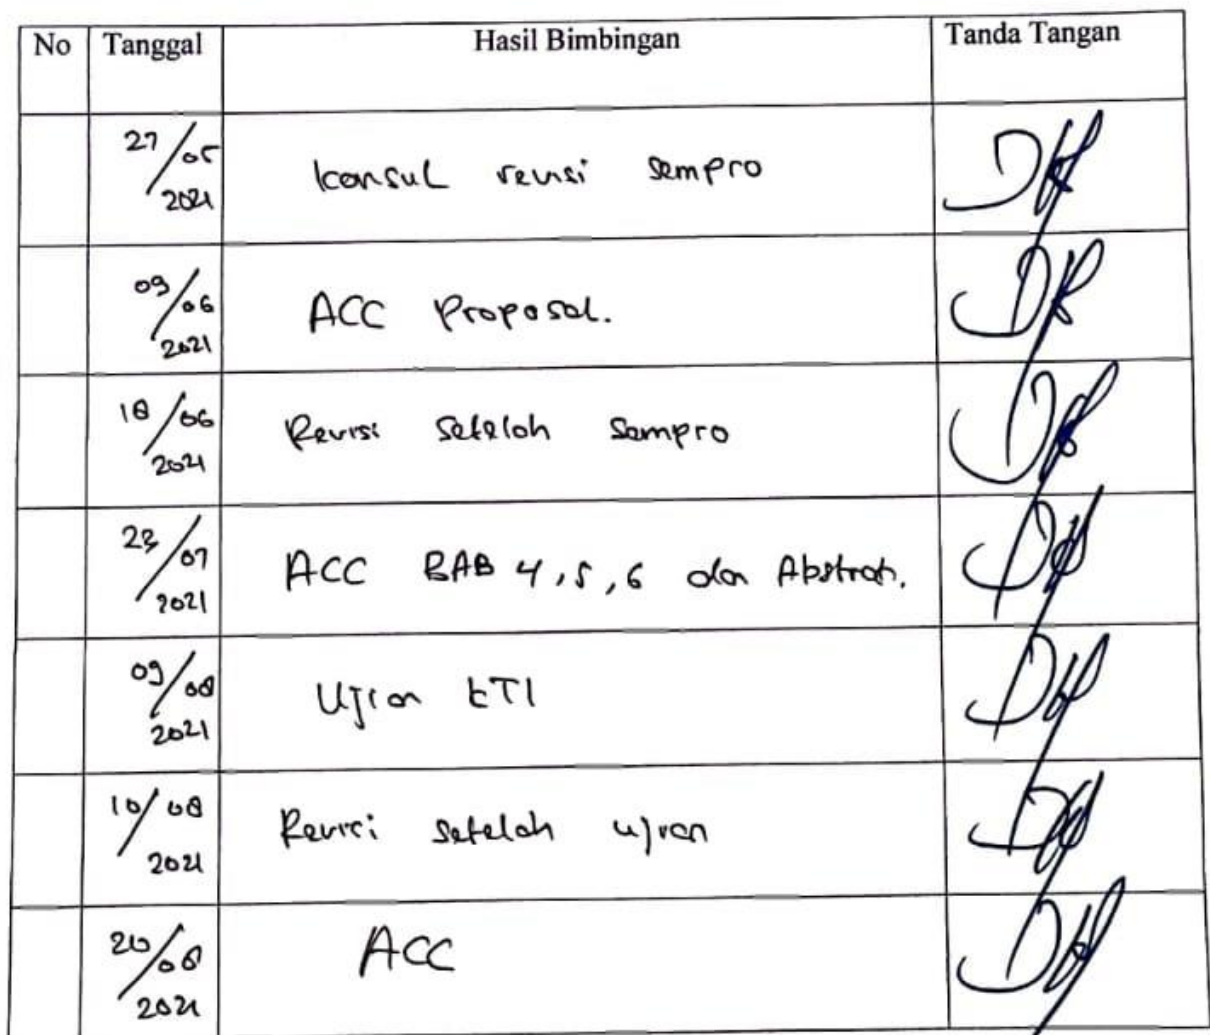 No Tanggal Hasil Bimbingan Tanda Tangan
27/05 2021 konsul revisi sempro
09/06 2021 ACC Proposal.
18/06 2021 Revisi setelah sempro
23/07 2021 ACC BAB 4,5,6 dan Abstrak.
09/08 2021 Ujian KTI
10/08 2021 Revisi setelah ujian
20/08 2021 ACC